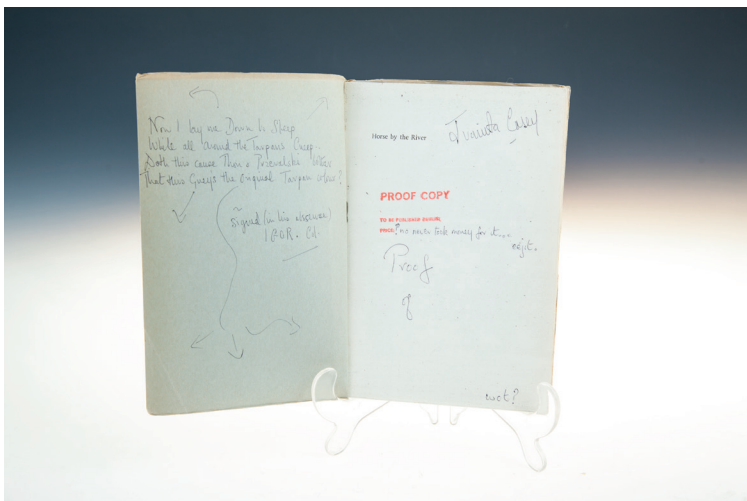 Now I lay me Down to Sleep
While all around the Tarpans Creep
Doth this cause Thor a Przewalski
That this Guy's the original Tarpan
signed (in his absence)
Ed.
Horse by the River
Juanita Casey
PROOF COPY
TO BE PUBLISHED DURING
PRICE ? no never took money for it...
Proof
of
wot?